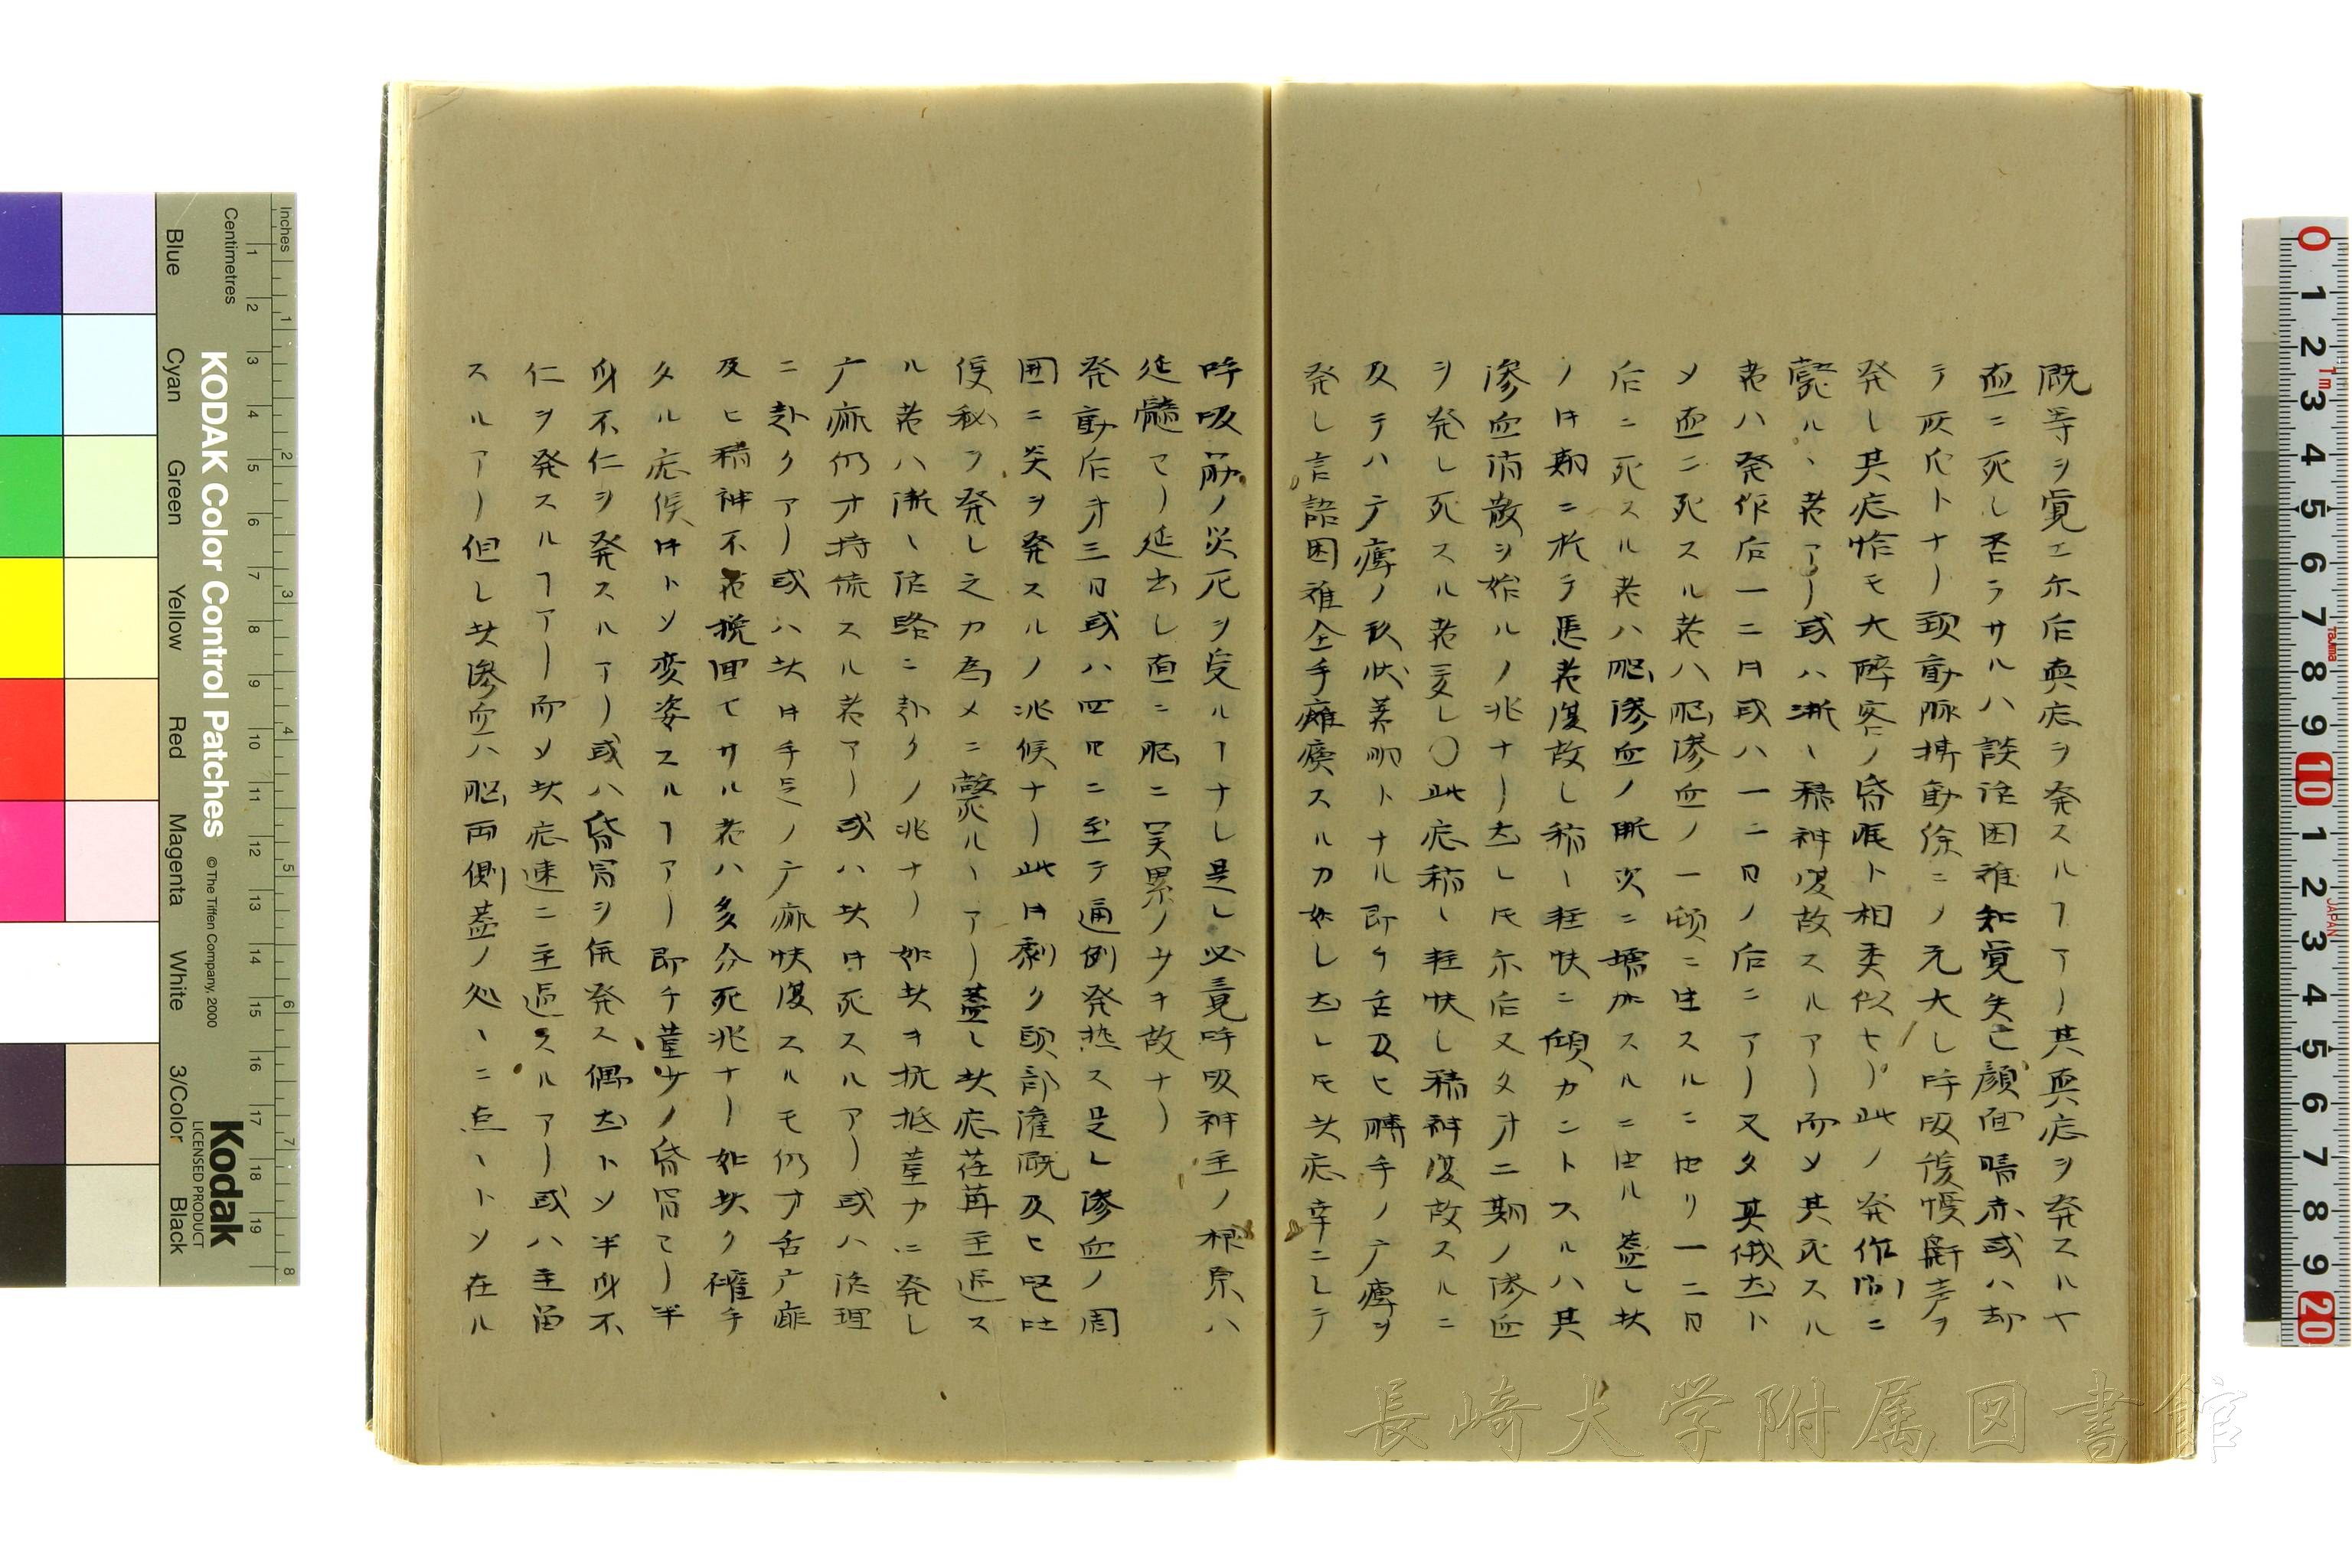 厥等ヲ覚エ尓后真症ヲ発スルヿアリ其真症ヲ発スルヤ
直ニ死し否ラサルハ談話困難知覚失亡顔面晴赤或ハ却
テ灰色トナリ頭動脉搏動徐ニノ尤大し呼吸緩慢鼾声ヲ
発し其症恰モ大酔客ノ昏眠ト相類似セリ此ノ発作間ニ
斃ルヽ者アリ或ハ漸々精神復故スルアリ而メ其死スル
者ハ発作后一二日或ハ一二日ノ后ニアリ又タ真俄然ト
メ直ニ死スル者ハ脳滲血ノ一頓ニ生スルニ由リ一二日
后ニ死スル者ハ脳滲血ノ漸次ニ増加スルニ由ル蓋し其
ノ日期ニ於テ患者復故し稍々軽快ニ傾カントスルハ其
滲血消散ヲ始ルノ兆ナリ然レ𪜈尓后又タ才二期ノ滲血
ヲ発し死スル者夛し〇此症稍々軽快し精神復故スルニ
及テハ广痺ノ状著明トナル即チ舌及ヒ膊手ノ广痺ヲ
発し言語困難全手癱瘓スルカ如し然レ𪜈其症幸ニレテ
呼吸筋ノ災厄ヲ受ルヿナし是レ必竟呼吸神主ノ根原ハ
延髄ヨリ延出し直ニ脳ニ関累ノ少キ故ナリ
発動后才三日或ハ四日ニ至テ通例発熱ス是レ滲血ノ周
囲ニ炎ヲ発スルノ兆候ナリ此日劇ク頭部灌厥及ヒ嘔吐
便秘ヲ発し之カ為メニ斃ルヽアリ蓋し其症荏苒主延ス
ル者ハ漸々活路ニ赴クノ兆ナリ如其キ抗抵薑力ニ発し
广痲仍ヲ持続スル者アリ或ハ其日死スルアリ或ハ活理
ニ赴クアリ或ハ其日手足ノ广痲快復スルモ仍ヲ舌广痲
及ヒ精神不者挽回セサル者ハ多分死兆ナリ如其ク確乎
タル症候日トメ変姿スルヿアリ即チ薑少ノ昏冒ヨリ半
身不仁ヲ発スルアリ或ハ昏冒ヲ併発ス偶然トメ半身不
仁ヲ発スルヿアリ而メ其症速ニ主延スルアリ或ハ主留
スルアリ但し其滲血ハ脳両側蓋ノ処々ニ点々トメ在ル
KODAK Color Control Patches
©The Tiffen Company, 2000
Kodak
LICENSED PRODUCT
Inches
Centimetres
Blue
Cyan
Green
Yellow
Red
Magenta
White
3/Color
Black
長崎大学附属図書館